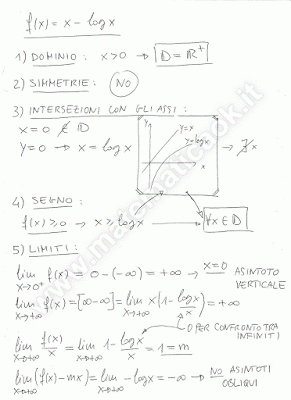 f(x) = x - log x
1) DOMINIO : x>0 → D = R⁺
2) SIMMETRIE : NO
3) INTERSEZIONI CON GLI ASSI :
x = 0 ∉ D
y = 0 → x = log x → ∄ x
y y=x
y=log x
x
4) SEGNO :
f(x) ≥ 0 → x ≥ log x → ∀x ∈ D
5) LIMITI :
lim x→0⁺ f(x) = 0-(-∞) = +∞ → x=0 ASINTOTO VERTICALE
lim x→+∞ f(x) = [∞-∞] = lim x→+∞ x(1 - log x / x) = +∞
0 PER CONFRONTO TRA INFINITI
lim x→+∞ f(x)/x = lim x→+∞ 1 - log x / x = 1 = m
lim x→+∞ (f(x) - mx) = lim x→+∞ -log x = -∞ → NO ASINTOTI OBLIQUI